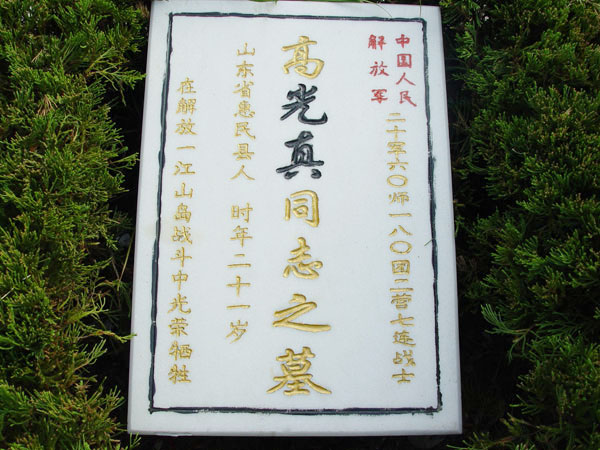 中国人民
解放军
二十军六〇师一八〇团二营七连战士
高光真同志之墓
山东省惠民县人 时年二十一岁
在解放一江山岛战斗中光荣牺牲